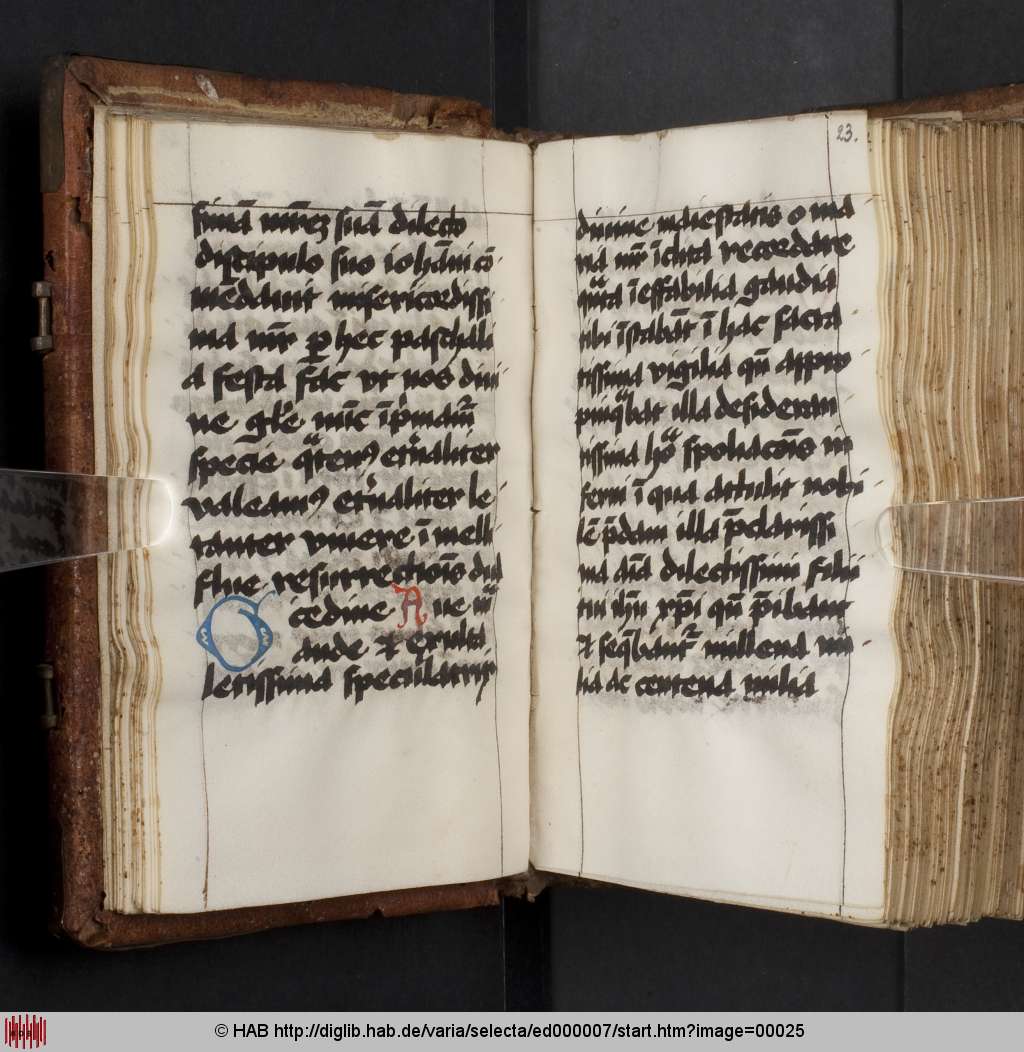 simā mr̄eʒ suā dilecto
discipulo suo ioħāni cō
mēdauit misericordissi
ma mr̄ ꝑ hec paschali
a festa fac vt nos diui
ne gl'e nūc
specie et'naliter
valeamꝰ et'naliter le
tanter viuere ī melli
flue resurrectiōis dul
cedine Aue
Gaude et exulta
letissima speculatrix
23.
diuine maiestatis o ma
ria recordare
qᷓnta ī effabilia gaudia
tibi īstabāt ī hac sacra
tissima vigilia qn̄ appro
pinq̄bat illa desideran
tissima hoᷓ spoliacōis in
ferni ī qua attulit nobi
lē p̄dam illa p̄clarissi
ma aīa dilectissimi filii
tui ihū xp̄i qn̄ p̄ibant
et seq̄bant' millena mi
lia ac centena milia
© HAB http://diglib.hab.de/varia/selecta/ed000007/start.htm?image=00025